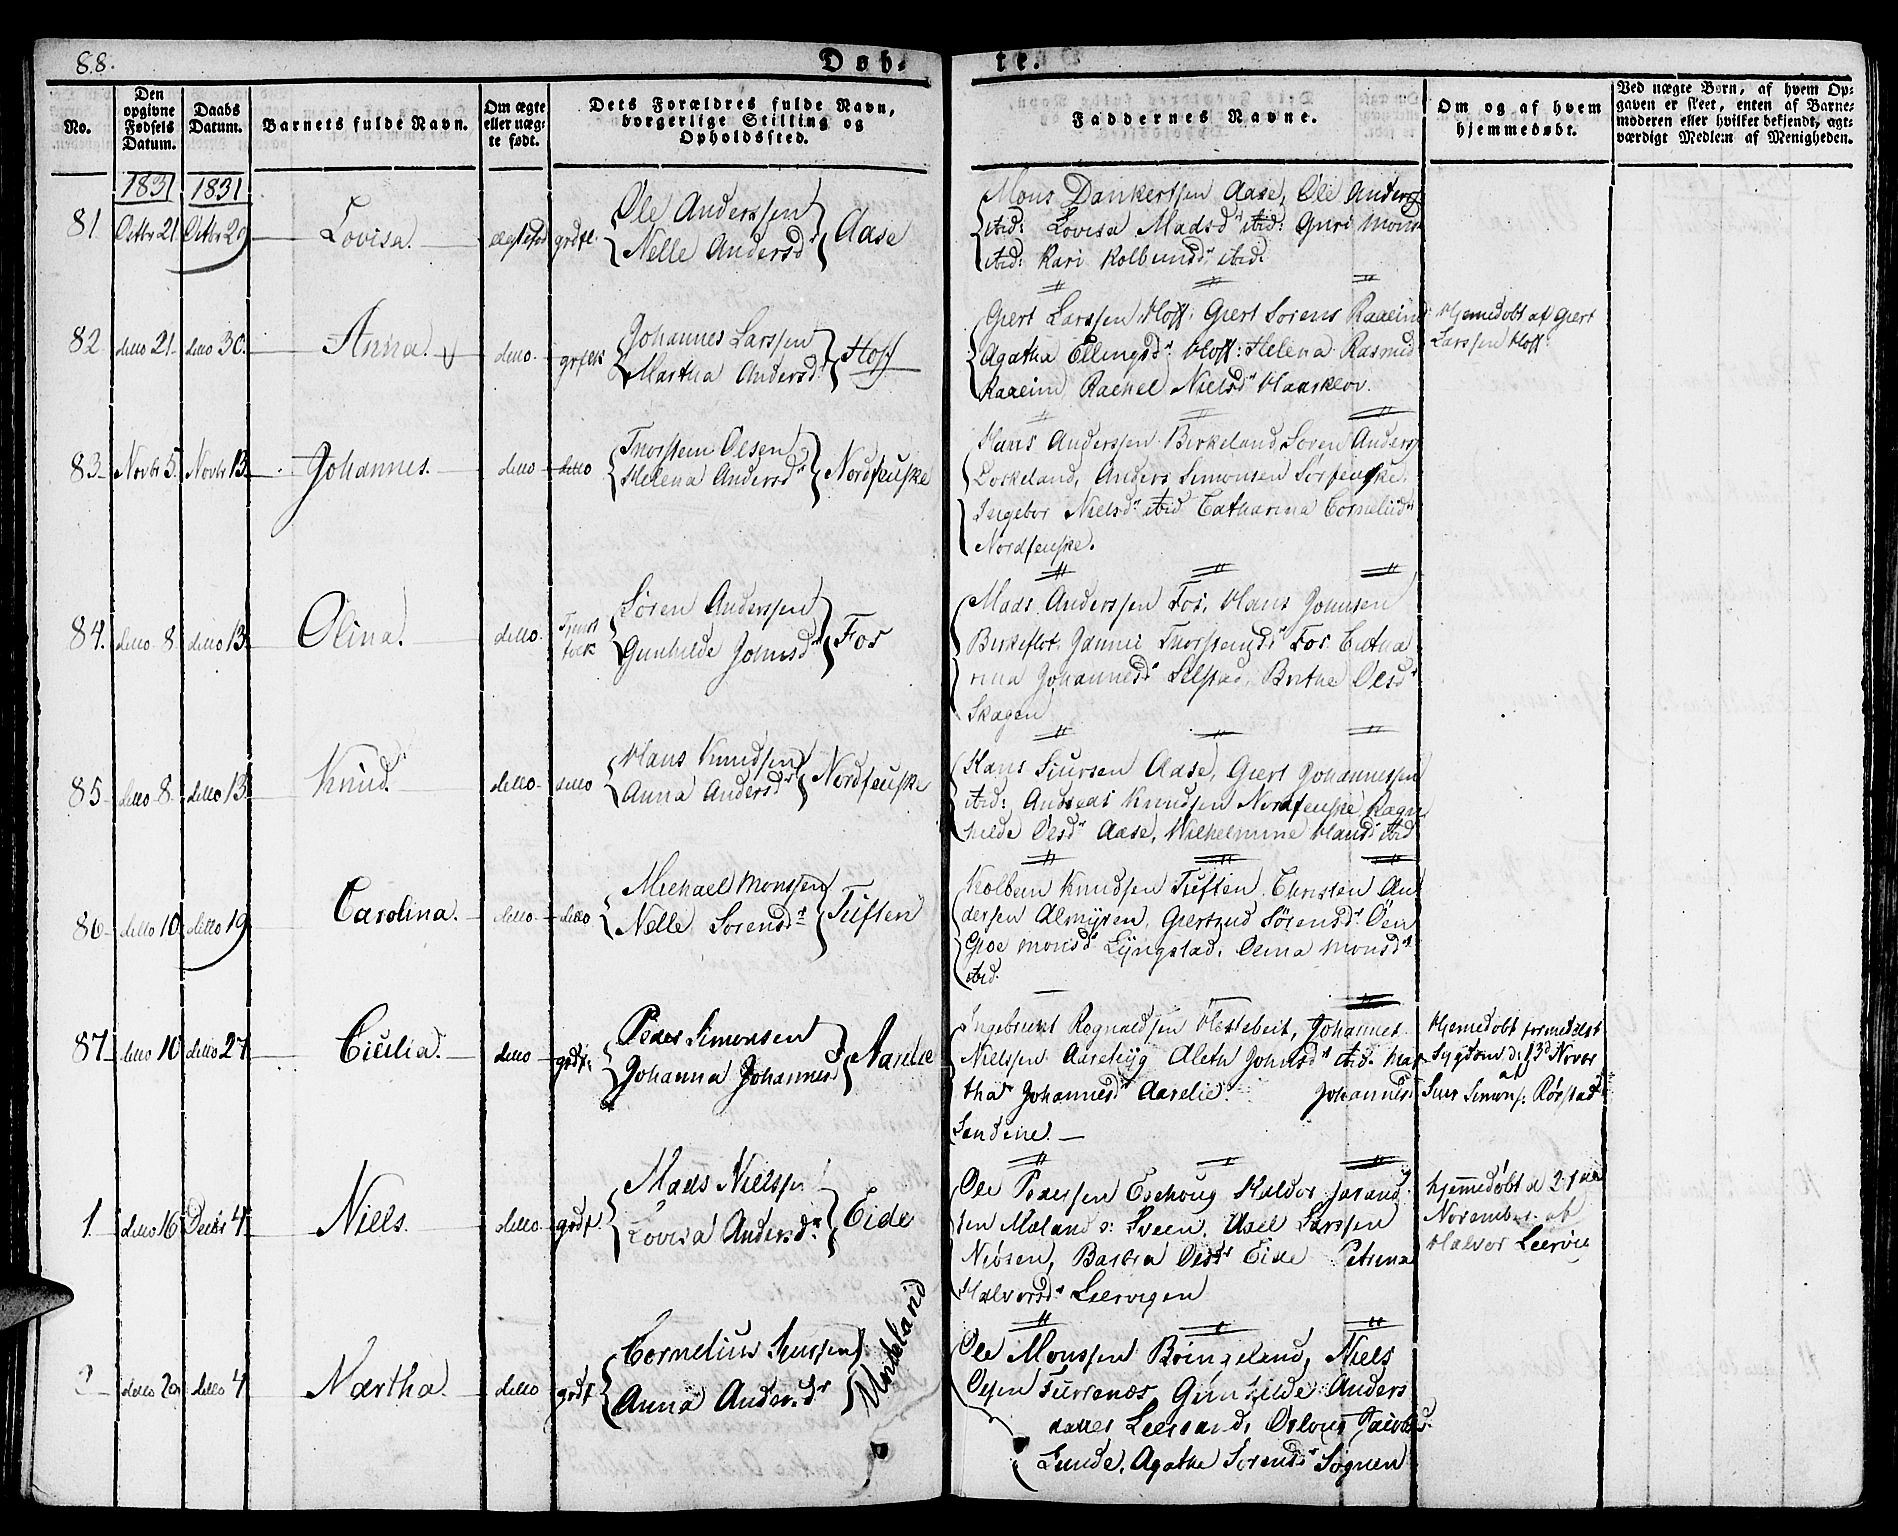 88.
Døb-
te.
No.
Den opgivne Fødsels Datum.
Daabs Datum.
Barnets fulde Navn.
Om ægte eller uæg-te født.
Dets Forældres fulde Navn, borgerlige Stilling og Opholdssted.
Faddernes Navne.
Om og af hvem hjemmedøbt.
Ved uægte Børn, af hvem Op-
gaven er skeet, enten af Barne-
moderen eller hvilket bekjendt, agt-
værdigt Medlem af Menigheden.
1831 1831
81 Octbr 21 Octbr 29 Lovisa. grdfl. Ole Anderssen
Nelle Andersd Aase
Mons Dankertsen Aase, Ole Anders
ibid: Lovisa Madsd ibid: Guri Mons
ibid: Kari Kolbeinsd ibid.
82 ditto 21 ditto 30. Anna. ditto grflk Johannes Larssen
Martha Andersd Hoff
Giert Larssen Hoff: Giert Sorens Raaeim
Agatha Ellingsd Hoff: Helena Rasmusd
Raaeim Rachel Nielsd
Hjemedøbt af Giert
Larssen Hoff:
83 Novbr 5. Novbr 13. Johannes. ditto ditto Thorstein Olsen
Helena Andersd Nordfeuske
Hans Anderssen Birkeland, Soren Anders
Loskeland, Anders Simonsen Sorfenske.
Ingebor Nielsd ibid Catharina Corneliid
Nordfenske.
84. ditto 8 ditto 13. Olina. ditto Søren Anderssen
Gunhilde Johnsd Fos
Mads Anderssen Fos, Hans Johnsen
Birkeflot, Jannie Thorstensd Fos Catha
rina Johannesd Selstad, Brithe Olsd
Skagen
85 ditto 8 ditto 13 Knud. ditto ditto Hans Knudsen
Anna Andersd Nordfeuske
Hans Siursen Aase, Giert Johannessen
ibid: Andreas Knudsen Nordfenske Ragn
hilde Olsd Aase, Wilhelmine Hansd ibid
86 ditto 10 ditto 19 Carolina. ditto ditto Michael Monssen
Nelle Sorensd Tuften
Kolbein Knudsen Tuften, Christen An
dersen Almyren, Giertrud Sørensd Øen
Gioe Monsd Lyngstad, Olina Monsd
ibid.
87 ditto 10 ditto 27 Cicilia. ditto grdf. Peder Simonsen
Johanna Johannesd Aarelie
Ingebricht Rognaldsen Hestebeit, Johannes
Nielsen Aarebryg Aleth Johnsd ibid. Mar
tha Johannesd Aarelie. Johannesd
Sandene.
Hjemedøbt formedelst
Sygdom d: 13d Novbr
af
Siur Simons: Rørstad
1 ditto 16 Decbr 4. Niels. ditto grdf. Mads Nielssen
Lovisa Andersd Eide
Ole Pedersen Eschoug Haldor Jorand
sen Mæland: Sveen, Axel Larssen
Niøsen, Barbra Olsd Eide Petrina
Halvorsd Leervigen
hjemedøbt d 21de
November af
Halvor Leervig
2 ditto 20 ditto 4 Martha. ditto grdf Cornelius Siurssen
Anna Andersd Undeland
Ole Monssen Bøingeland, Niels
Olsen Furrenæs, Gunhilde Anders
datter Leersand, Osloug Jacobsd
Lunde, Agathe Sorensd Sognen